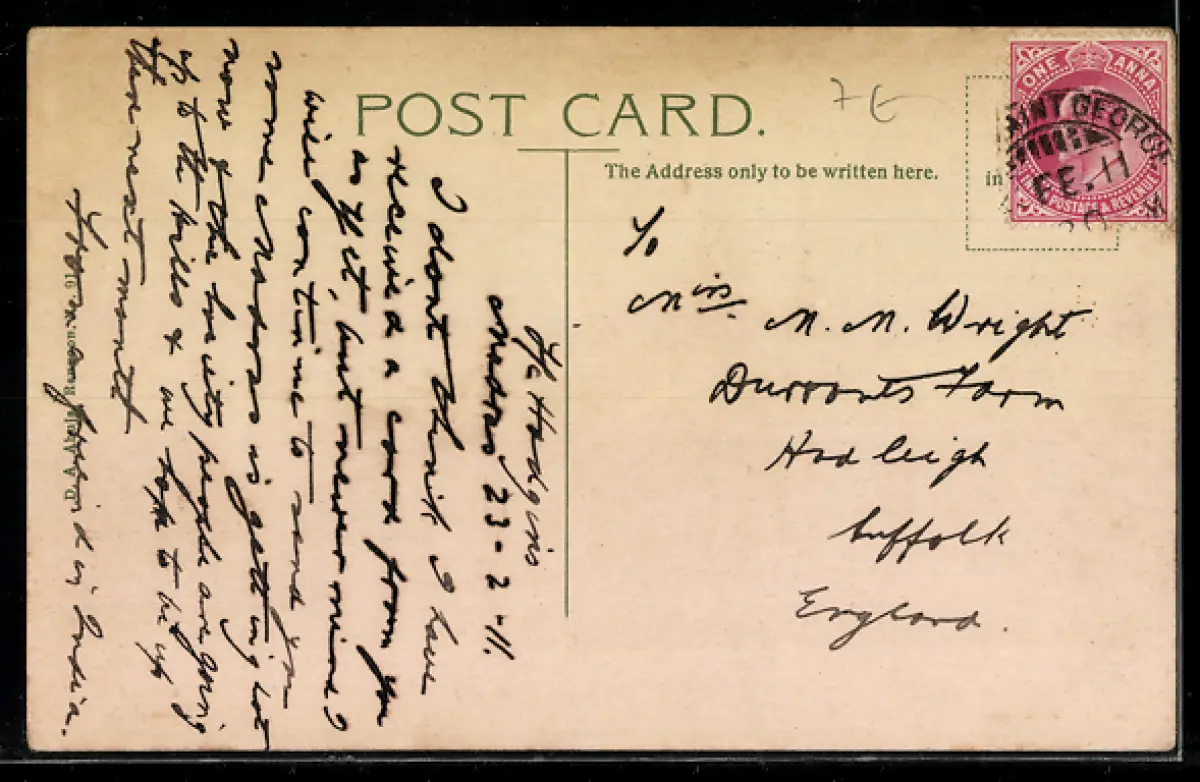 POST CARD.
7 E
The Address only to be written here.
in
ONE ANNA
POSTAGE & REVENUE
AINT GEORGE
FE. 11
To
Mrs. M. M. Wright
Durrants Farm
Hadleigh
Suffolk
England.
Y/c Hodgins
Madras 23-2-11.
I dont think I have
received a card from you
as yet, but never mind I
will continue to send you
some Madras is getting hot
now & the society people are going
up to the hills & we hope to be up
there next month
From a friend in India.